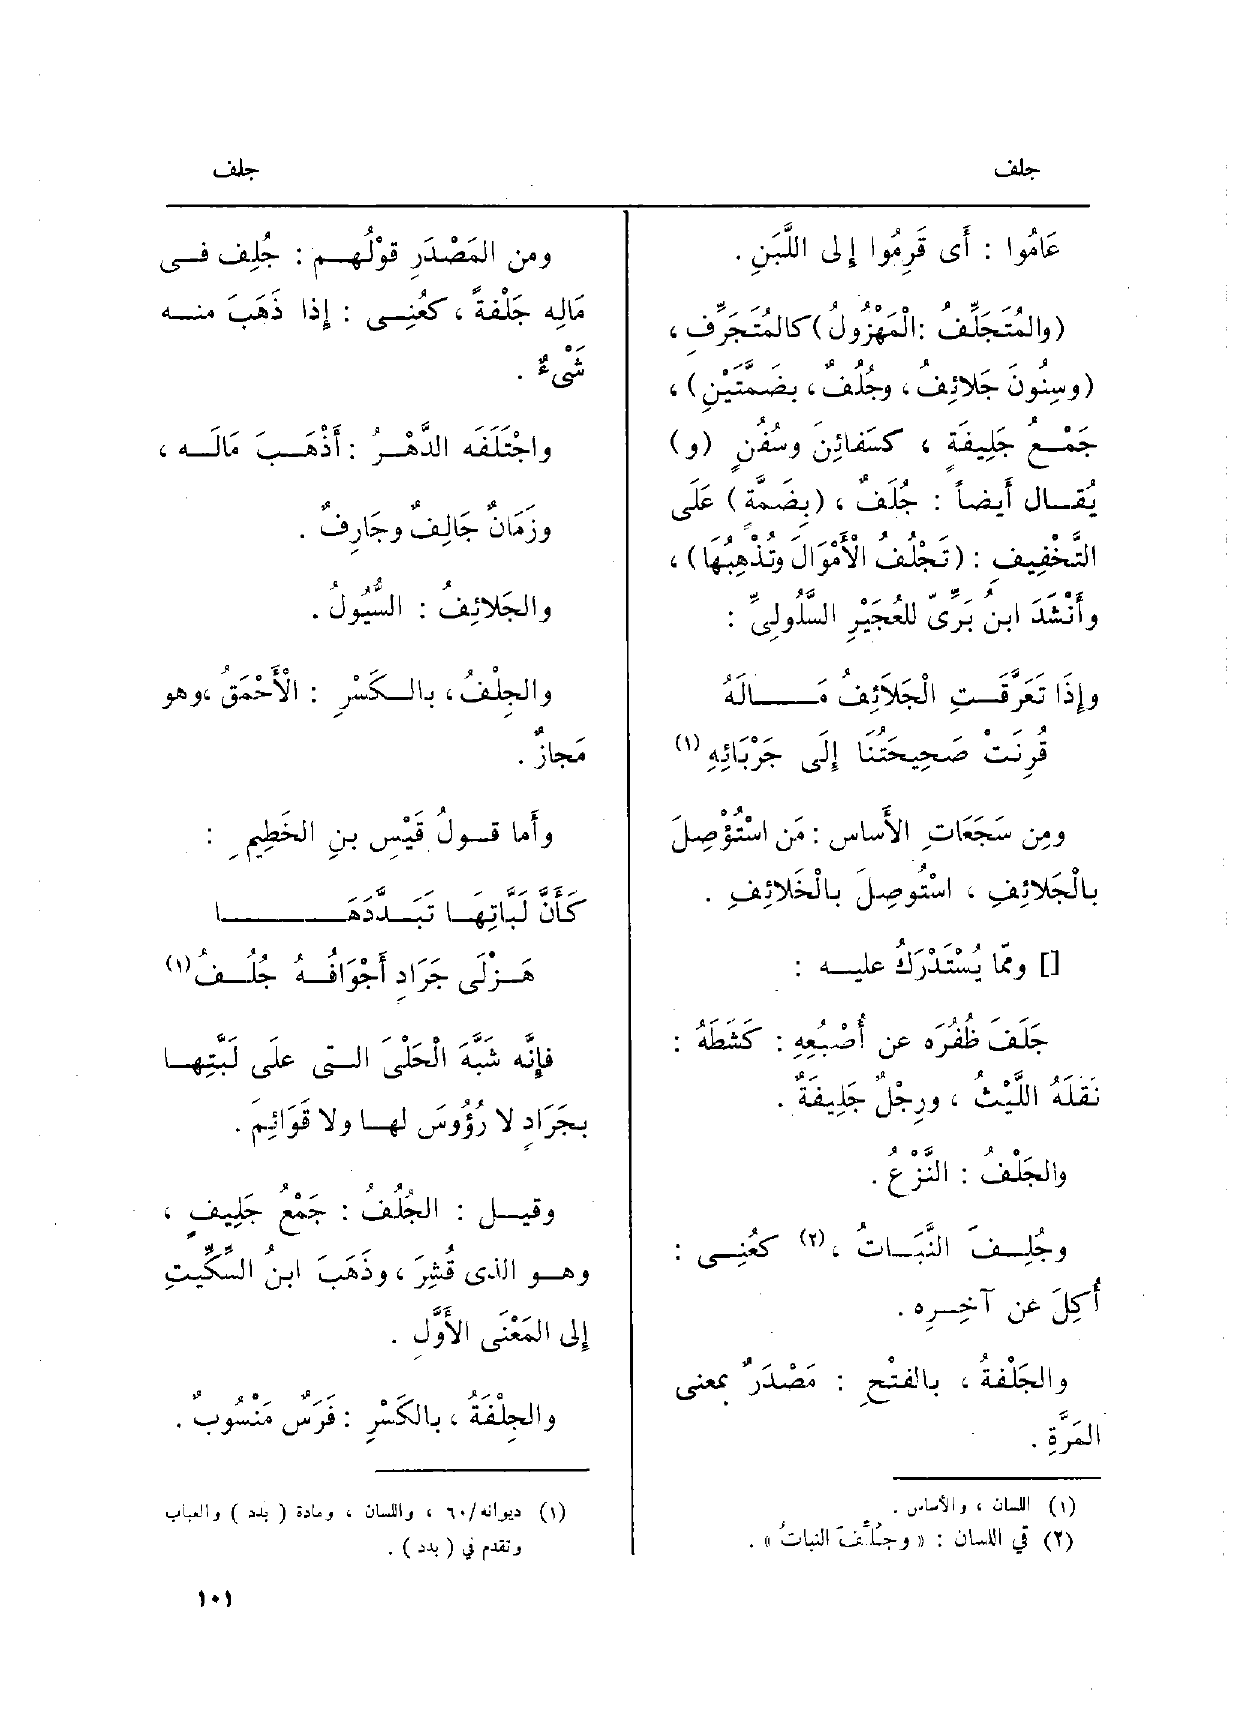 جلف
جلف
عَامُوا : أَى قَرِمُوا إِلى اللَّبَنِ .
(والمُتَجَلِّفُ : المَهْزُولُ) كالمُتَجَرِّفِ ،
(وسِنُونَ جَلائِفُ ، وجُلُفٌ ، بضَمَّتَيْنِ) ،
جَمْعُ جَلِيفَةٍ ، كسَفَائِنَ وسُفُنٍ (و)
يُقَال أَيضاً : جُلَفٌ ، (بِضَمَّةٍ) عَلَى
التَّخْفِيفِ : (تَجْلُفُ الْأَمْوَالَ وتُذْهِبُهَا) ،
وأَنْشَدَ ابنُ بَرِّىّ للعُجَيْرِ السَّلُولِىِّ :
وإِذَا تَعَرَّقَتِ الْجَلَائِفُ مَالَهُ
قُرِنَتْ صَحِيحَتُنَا إِلَى جَرْبَائِهِ (١)
ومِن سَجَعَاتِ الأَساس : مَن اسْتُؤْصِلَ
بالْجَلائِفِ ، اسْتُوصِلَ بالْخَلائِفِ .
[] وممّا يُسْتَدْرَكُ عليه :
جَلَفَ ظُفُرَه عن أُصْبُعِهِ : كَشَطَهُ :
نَقَلَهُ اللَّيْثُ ، ورِجْلٌ جَلِيفَةٌ .
والجَلْفُ : النَّزْعُ .
وجُلِفَ النَّبَاتُ ، (٢) كعُنِى :
أُكِلَ عن آخِرِه .
والجَلْفةُ ، بالفتْحِ : مَصْدَرٌ بمعنى
المَرَّةِ .
(١) اللسان ، والأساس .
(٢) في اللسان : « وجُلِّفَ النباتُ » .
ومن المَصْدَرِ قوْلُهم : جُلِفَ فى
مَالِه جَلْفةً ، كعُنِى : إذا ذَهَبَ منه
شَىْءٌ .
واجْتَلَفَه الدَّهْرُ : أَذْهَبَ مَالَه ،
وزَمَانٌ جَالِفٌ وجَارِفٌ .
والجَلائِفُ : السُّيُولُ .
والجِلْفُ ، بالكَسْرِ : الْأَحْمَقُ ، وهو
مَجازٌ .
وأَما قولُ قَيْسِ بنِ الخَطِيمِ :
كَأَنَّ لَبَّاتِهَا تَبَدَّدَهَا
هَزْلَى جَرَادٍ أَجْوَافُهُ جُلُفُ (١)
فإِنَّه شَبَّهَ الْحَلْىَ التى علَى لَبَّتِها
بجَرَادٍ لا رُؤُوسَ لها ولا قَوَائِمَ .
وقيل : الجُلُفُ : جَمْعُ جَلِيفٍ ،
وهو الذى قُشِرَ ، وذَهَبَ ابنُ السِّكِّيتِ
إلى المَعْنَى الأَوَّلِ .
والجِلْفَةُ ، بالكَسْرِ : فَرَسٌ مَنْسُوبٌ .
(١) ديوانه/٦٠ ، واللسان ، ومادة ( بدد ) والعباب
وتقدم في ( بدد ) .
١٠١